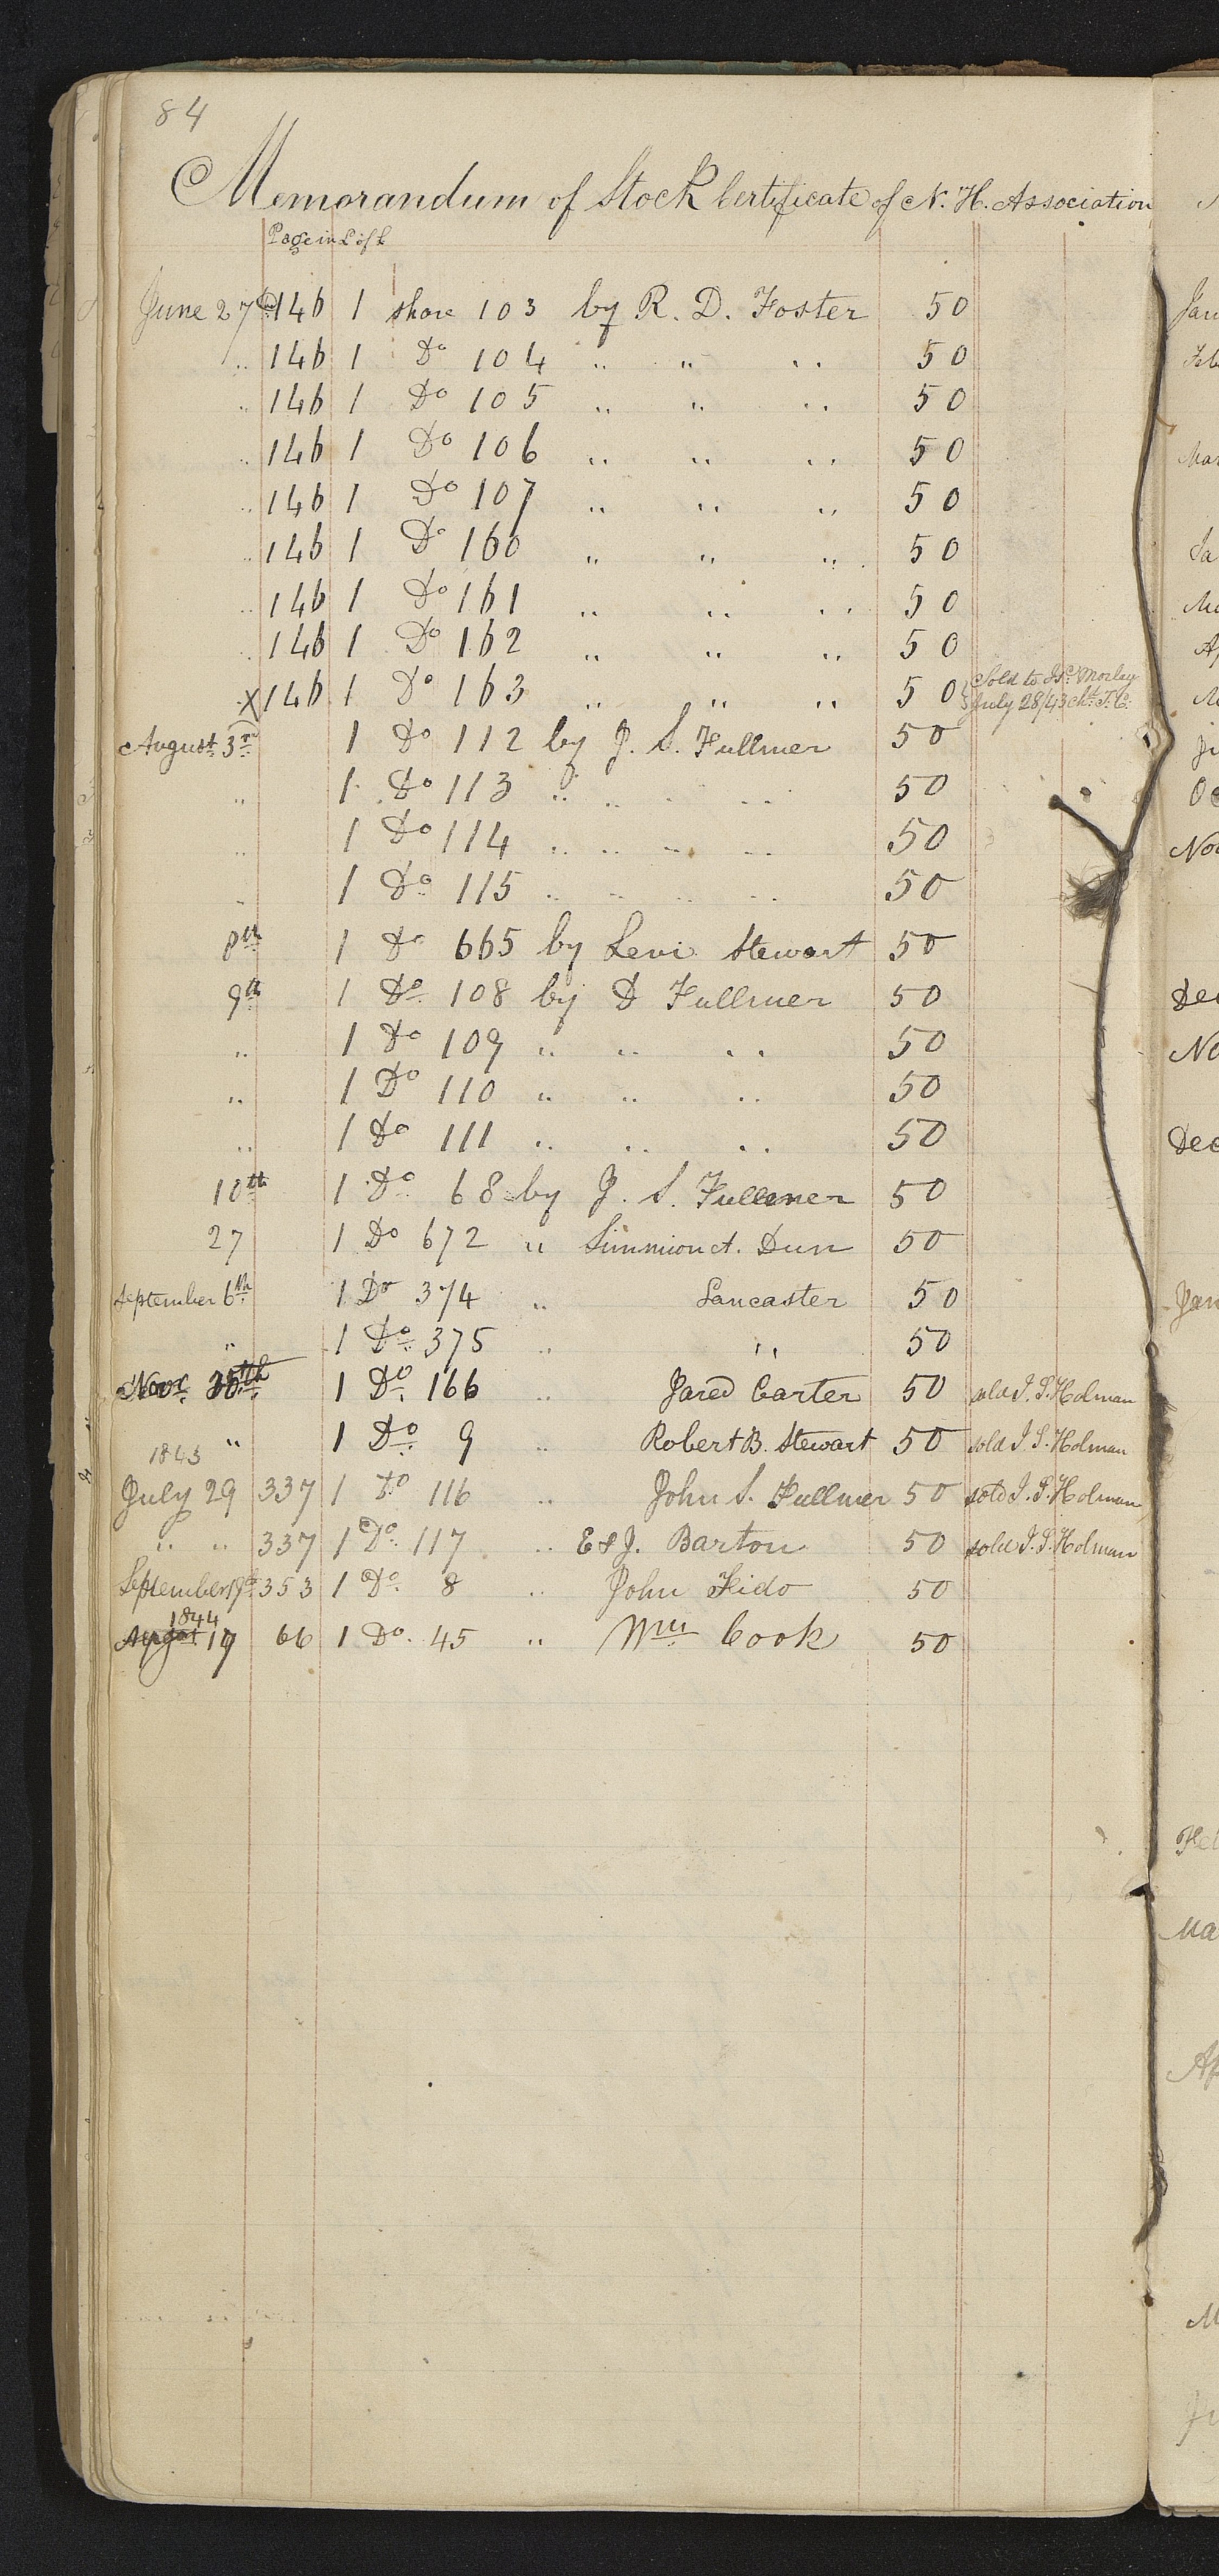 84
Memorandum of Stock Certificate of N. H. Association
Page in L of L
June 27th 146 1 share 103 by R. D. Foster 50
" 146 1 Do 104 " " " 50
" 146 1 Do 105 " " " 50
" 146 1 Do 106 " " " 50
" 146 1 Do 107 " " " 50
" 146 1 Do 160 " " " 50
" 146 1 Do 161 " " " 50
" 146 1 Do 162 " " " 50
X 146 1 Do 163 " " " 50 Sold to Isc. Morley
July 28/43
August 3rd 1 Do 112 by J. S. Fullmer 50
" 1 Do 113 " " " " 50
" 1 Do 114 " " " " 50
" 1 Do 115 " " " " 50
8th 1 Do 665 by Levi Stewart 50
9th 1 Do 108 by D Fullmer 50
" 1 Do 109 " " " 50
" 1 Do 110 " " " 50
" 1 Do 111 " " " 50
10th 1 Do 68 by J. S. Fullmer 50
27 1 Do 672 " Simmion A. Dun 50
September 6th 1 Do 374 " Lancaster 50
" 1 Do 375 " " 50
Novr. 1 Do 166 " Jared Carter 50 sold J. S. Holman
" 1 Do 9 " Robert B. Stewart 50 sold J. S. Holman
1843
July 29 337 1 Do 116 " John S. Fullmer 50 sold J. S. Holman
" " 337 1 Do 117 " E & J. Barton 50 sold J. S. Holman
September 353 1 Do 8 " John Fido 50
1844
August 19 66 1 Do. 45 " Wm Cook 50
Jan
Feb
Mar
Ja
Ma
Ap
M
Ju
Oc
Nov
Dec
No
Dec
Jan
Feb
Ma
Ap
M
Ju